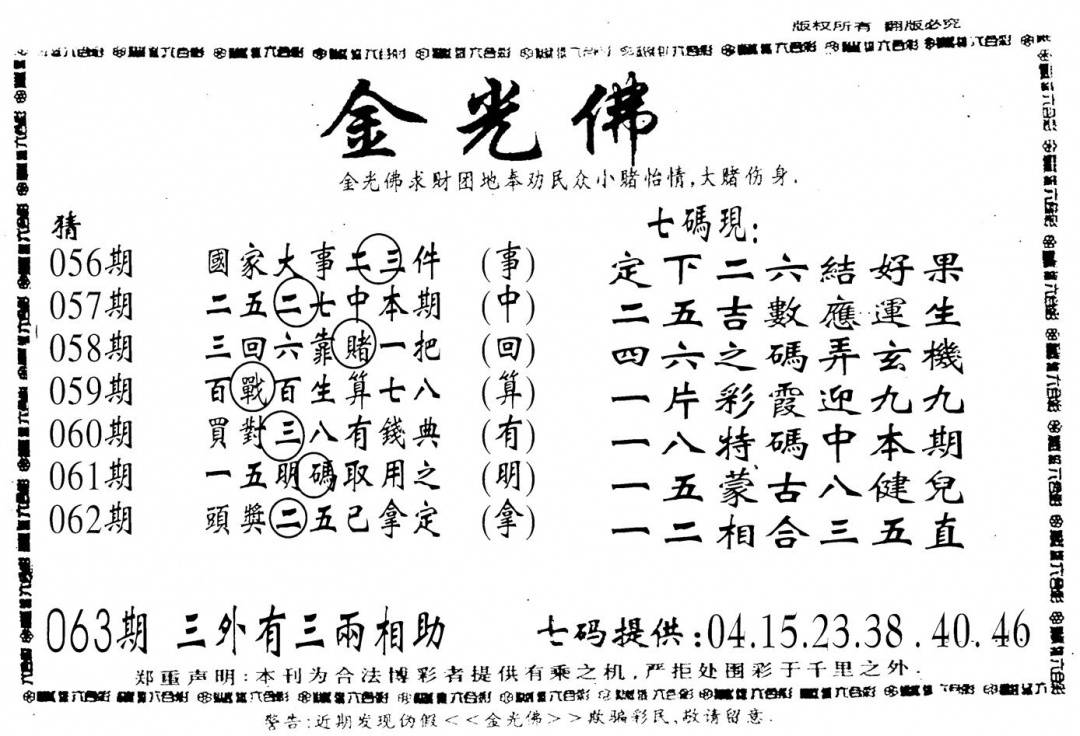 版权所有 翻版必究
金光佛
金光佛求财团地奉劝民众小赌怡情,大赌伤身.
猜
056期 國家大事二三件 (事)
057期 二五二七中本期 (中)
058期 三回六靠賭一把 (回)
059期 百戰百生算七八 (算)
060期 買對三八有錢典 (有)
061期 一五明碼取用之 (明)
062期 頭獎二五已拿定 (拿)
七碼現:
定下二六結好果
二五吉數應運生
四六之碼弄玄機
一片彩霞迎九九
一八特碼中本期
一五蒙古八健兒
一二相合三五直
063期 三外有三兩相助 七码提供:04.15.23.38.40.46
郑重声明:本刊为合法博彩者提供有乘之机,严拒处围彩于千里之外.
警告:近期发现伪假<<金光佛>>欺骗彩民,敬请留意.